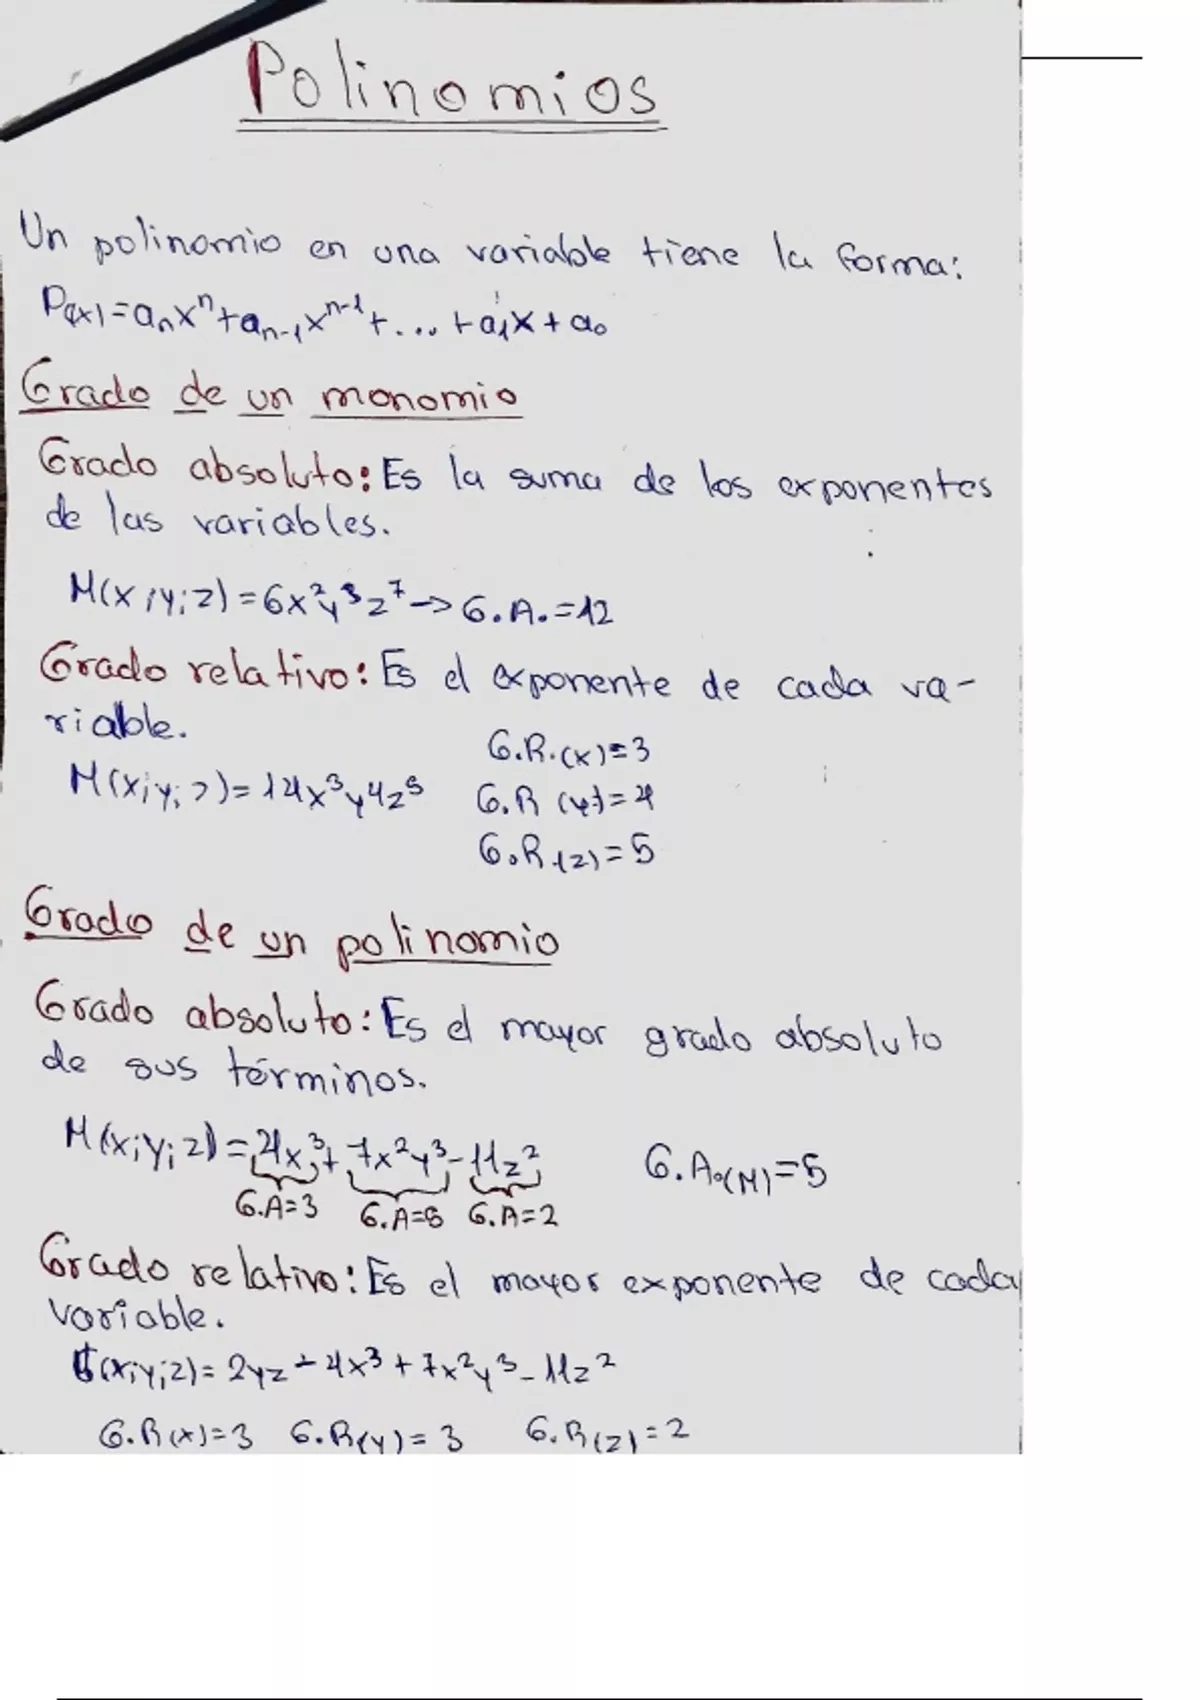 Polinomios
Un polinomio en una variable tiene la forma:
P(x)=aₙxⁿ+aₙ₋₁xⁿ⁻¹+...+a₁x+a₀
Grado de un monomio
Grado absoluto: Es la suma de los exponentes
de las variables.
M(x;y;z)=6x²y³z⁷→G.A.=12
Grado relativo: Es el exponente de cada va-
riable.
G.R.(x)=3
M(x;y;z)=14x³y4z⁵ G.R(y)=4
G.R.(z)=5
Grado de un polinomio
Grado absoluto: Es el mayor grado absoluto
de sus términos.
M(x;y;z)=4x³+7x²y³-11z² G.A.(M)=5
G.A=3 G.A=5 G.A=2
Grado relativo: Es el mayor exponente de cada
variable.
(x;y;z)=2yz-4x³+7x²y³-11z²
G.R(x)=3 G.R(y)=3 G.R(z)=2